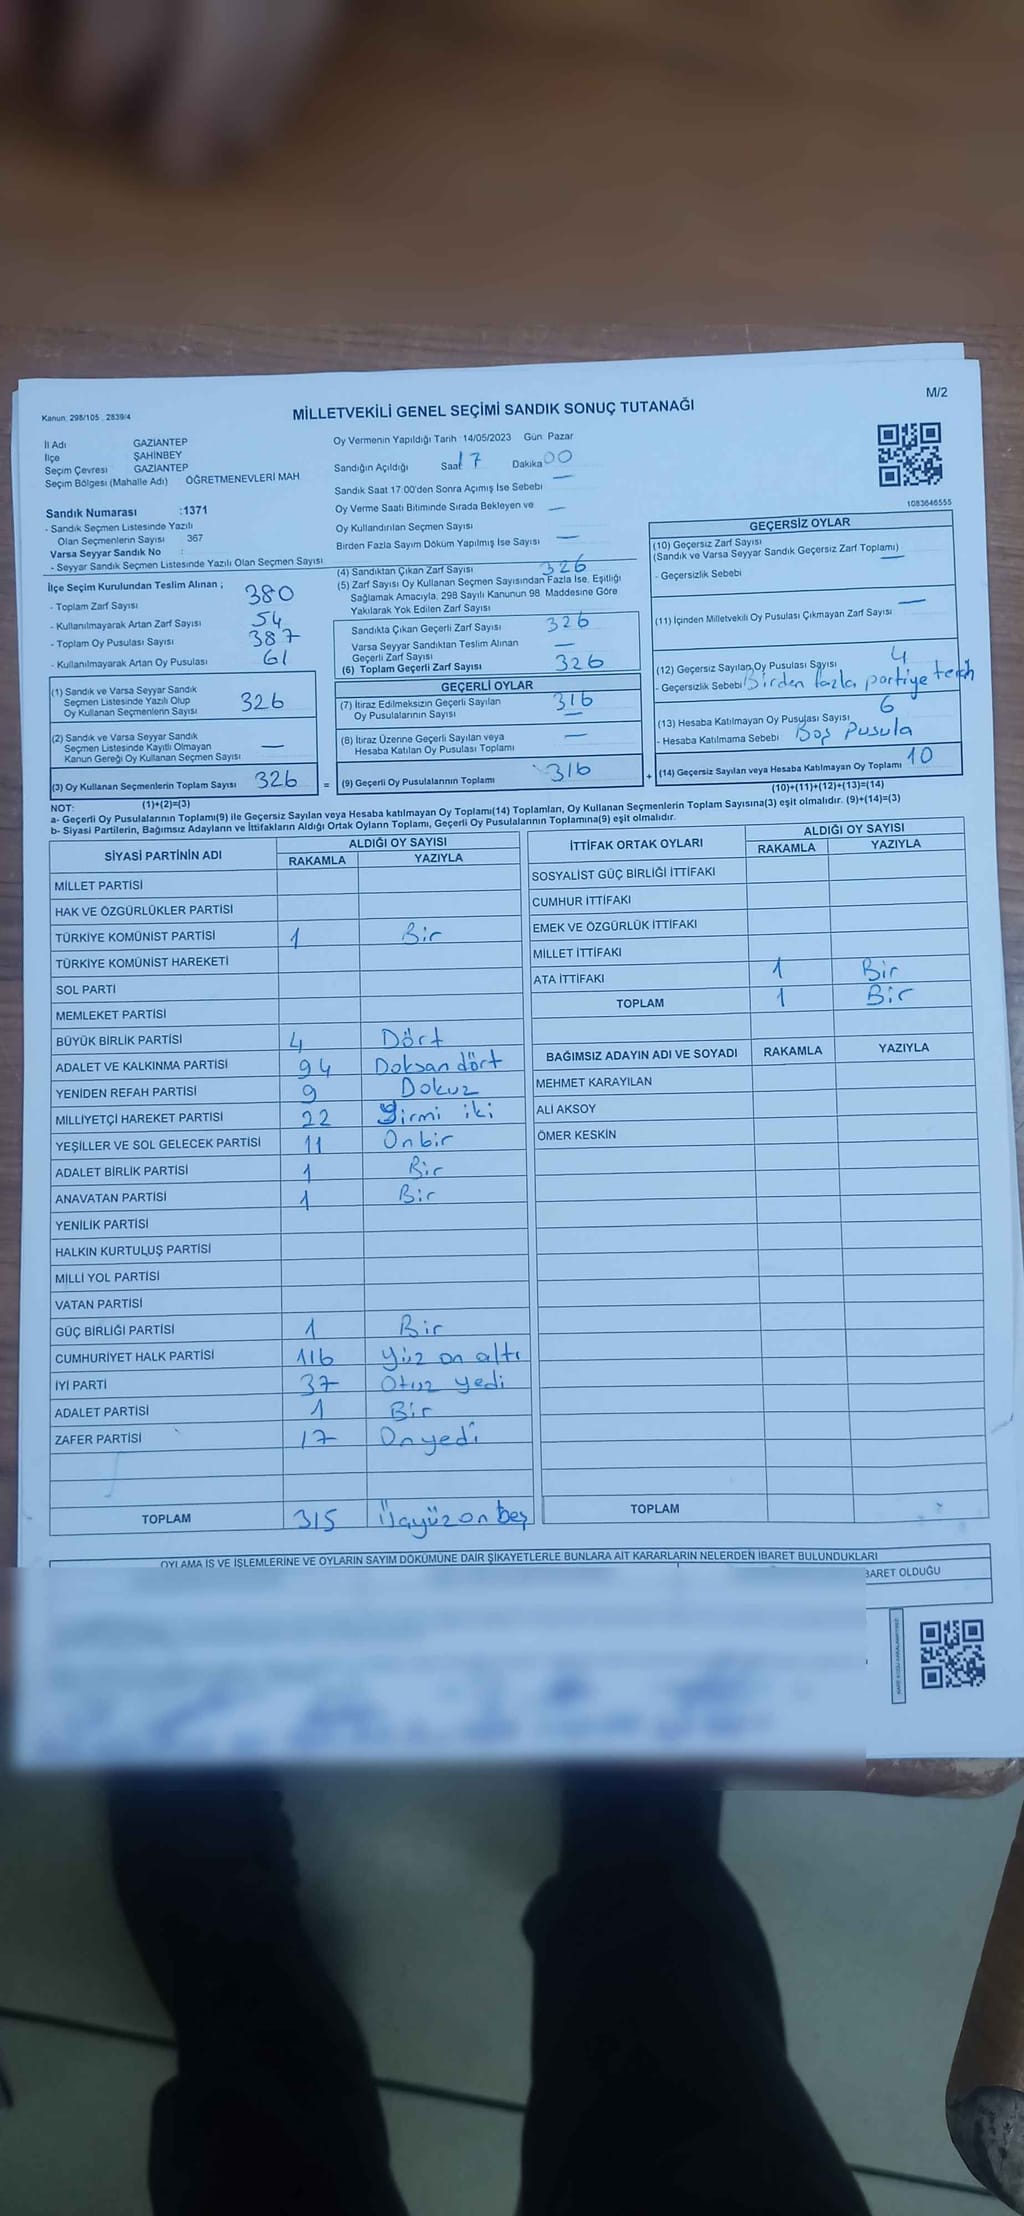 Kanun: 298/105 2839/4
MİLLETVEKİLİ GENEL SEÇİMİ SANDIK SONUÇ TUTANAĞI
M/2
İl Adı GAZİANTEP
İlçe ŞAHİNBEY
Seçim Çevresi GAZİANTEP
Seçim Bölgesi (Mahalle Adı) ÖĞRETMENEVLERİ MAH
Sandık Numarası :1371
- Sandık Seçmen Listesinde Yazılı
Olan Seçmenlerin Sayısı 367
Varsa Seyyar Sandık No :
- Seyyar Sandık Seçmen Listesinde Yazılı Olan Seçmen Sayısı:
Oy Vermenin Yapıldığı Tarih 14/05/2023 Gün: Pazar
Sandığın Açıldığı Saat 17 Dakika 00
Sandık Saat 17:00'den Sonra Açımış İse Sebebi —
Oy Verme Saati Bitiminde Sırada Bekleyen ve —
Oy Kullandırılan Seçmen Sayısı
Birden Fazla Sayım Döküm Yapılmış İse Sayısı —
1083646555
İlçe Seçim Kurulundan Teslim Alınan ;
- Toplam Zarf Sayısı 380
- Kullanılmayarak Artan Zarf Sayısı 54
- Toplam Oy Pusulası Sayısı 387
- Kullanılmayarak Artan Oy Pusulası 61
(1) Sandık ve Varsa Seyyar Sandık
Seçmen Listesinde Yazılı Olup
Oy Kullanan Seçmenlerin Sayısı 326
(2) Sandık ve Varsa Seyyar Sandık
Seçmen Listesinde Kayıtlı Olmayan
Kanun Gereği Oy Kullanan Seçmen Sayısı —
(3) Oy Kullanan Seçmenlerin Toplam Sayısı 326 =
(4) Sandıktan Çıkan Zarf Sayısı 326
(5) Zarf Sayısı Oy Kullanan Seçmen Sayısından Fazla İse, Eşitliği
Sağlamak Amacıyla, 298 Sayılı Kanunun 98. Maddesine Göre
Yakılarak Yok Edilen Zarf Sayısı
Sandıkta Çıkan Geçerli Zarf Sayısı 326
Varsa Seyyar Sandıktan Teslim Alınan
Geçerli Zarf Sayısı —
(6) Toplam Geçerli Zarf Sayısı 326
GEÇERLİ OYLAR
(7) İtiraz Edilmeksizin Geçerli Sayılan
Oy Pusulalarının Sayısı 316
(8) İtiraz Üzerine Geçerli Sayılan veya
Hesaba Katılan Oy Pusulası Toplamı —
(9) Geçerli Oy Pusulalarının Toplamı 316 +
GEÇERSİZ OYLAR
(10) Geçersiz Zarf Sayısı
(Sandık ve Varsa Seyyar Sandık Geçersiz Zarf Toplamı) —
- Geçersizlik Sebebi
(11) İçinden Milletvekili Oy Pusulası Çıkmayan Zarf Sayısı —
(12) Geçersiz Sayılan Oy Pusulası Sayısı 4
- Geçersizlik Sebebi Birden fazla partiye
(13) Hesaba Katılmayan Oy Pusulası Sayısı 6
- Hesaba Katılmama Sebebi Boş Pusula
(14) Geçersiz Sayılan veya Hesaba Katılmayan Oy Toplamı 10
NOT: (1)+(2)=(3) (10)+(11)+(12)+(13)=(14)
a- Geçerli Oy Pusulalarının Toplamı(9) ile Geçersiz Sayılan veya Hesaba katılmayan Oy Toplamı(14) Toplamları, Oy Kullanan Seçmenlerin Toplam Sayısına(3) eşit olmalıdır. (9)+(14)=(3)
b- Siyasi Partilerin, Bağımsız Adayların ve İttifakların Aldığı Ortak Oyların Toplamı, Geçerli Oy Pusulalarının Toplamına(9) eşit olmalıdır.
SİYASİ PARTİNİN ADI ALDIĞI OY SAYISI
RAKAMLA YAZIYLA
MİLLET PARTİSİ
HAK VE ÖZGÜRLÜKLER PARTİSİ
TÜRKİYE KOMÜNİST PARTİSİ 1 Bir
TÜRKİYE KOMÜNİST HAREKETİ
SOL PARTİ
MEMLEKET PARTİSİ
BÜYÜK BİRLİK PARTİSİ 4 Dört
ADALET VE KALKINMA PARTİSİ 94 Doksan dört
YENİDEN REFAH PARTİSİ 9 Dokuz
MİLLİYETÇİ HAREKET PARTİSİ 22 Yirmi iki
YEŞİLLER VE SOL GELECEK PARTİSİ 11 Onbir
ADALET BİRLİK PARTİSİ 1 Bir
ANAVATAN PARTİSİ 1 Bir
YENİLİK PARTİSİ
HALKIN KURTULUŞ PARTİSİ
MİLLİ YOL PARTİSİ
VATAN PARTİSİ
GÜÇ BİRLİĞİ PARTİSİ 1 Bir
CUMHURİYET HALK PARTİSİ 116 Yüz on altı
İYİ PARTİ 37 Otuz yedi
ADALET PARTİSİ 1 Bir
ZAFER PARTİSİ 17 Onyedi
TOPLAM 315 Üçyüz on beş
İTTİFAK ORTAK OYLARI ALDIĞI OY SAYISI
RAKAMLA YAZIYLA
SOSYALİST GÜÇ BİRLİĞİ İTTİFAKI
CUMHUR İTTİFAKI
EMEK VE ÖZGÜRLÜK İTTİFAKI
MİLLET İTTİFAKI
ATA İTTİFAKI 1 Bir
TOPLAM 1 Bir
BAĞIMSIZ ADAYIN ADI VE SOYADI RAKAMLA YAZIYLA
MEHMET KARAYILAN
ALİ AKSOY
ÖMER KESKİN
TOPLAM
OYLAMA İŞ VE İŞLEMLERİNE VE OYLARIN SAYIM DÖKÜMÜNE DAİR ŞİKAYETLERLE BUNLARA AİT KARARLARIN NELERDEN İBARET BULUNDUKLARI
BARET OLDUĞU